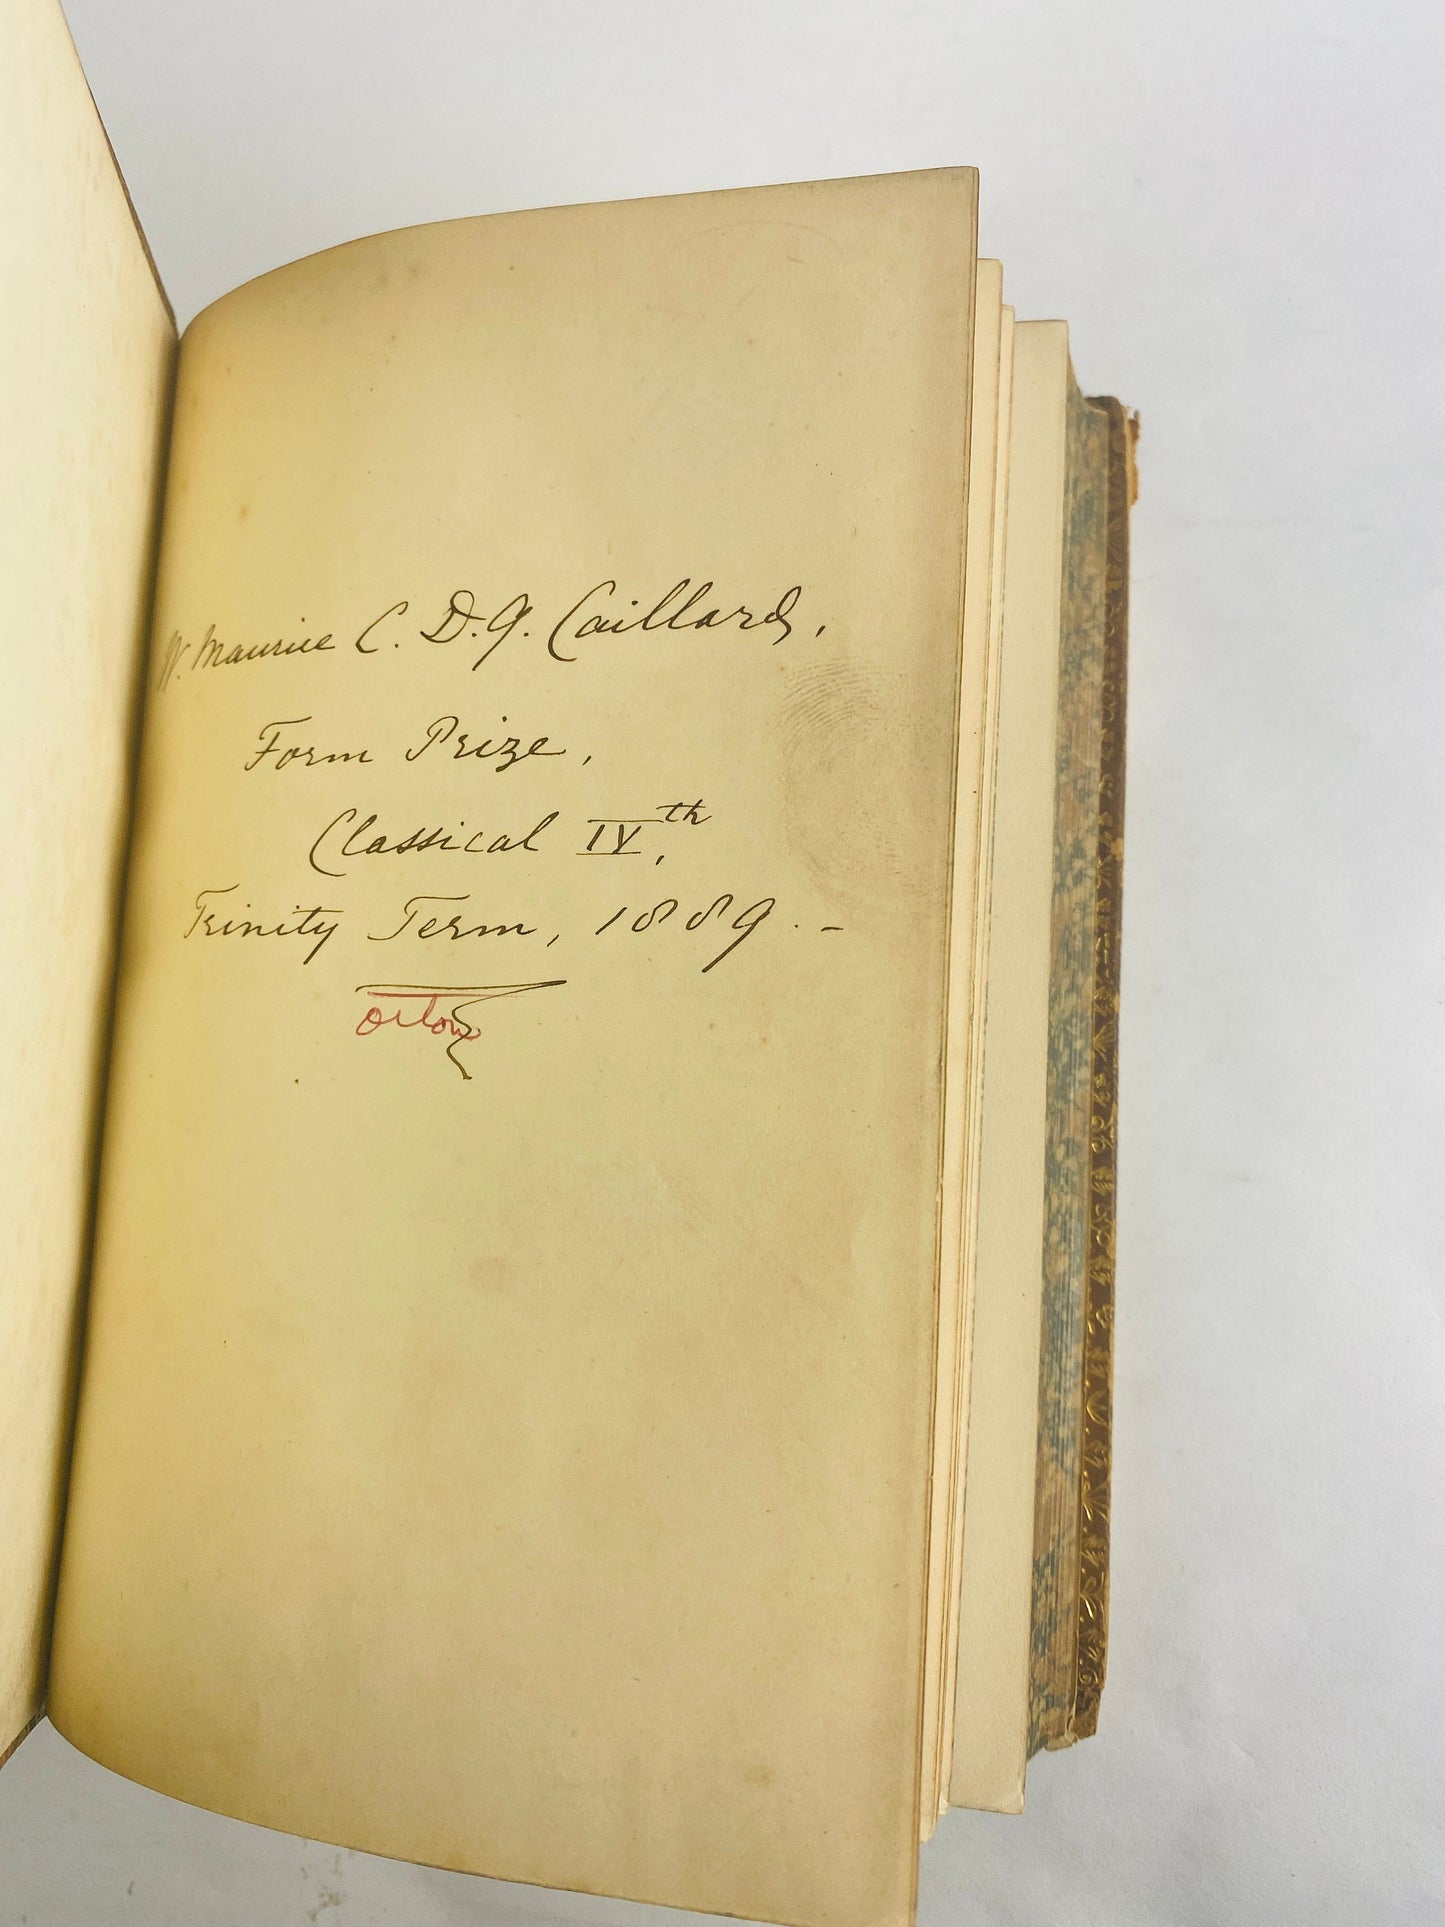 W. Maurice C. D. G. Caillard,
Form Prize,
Classical IVth,
Trinity Term, 1889. -